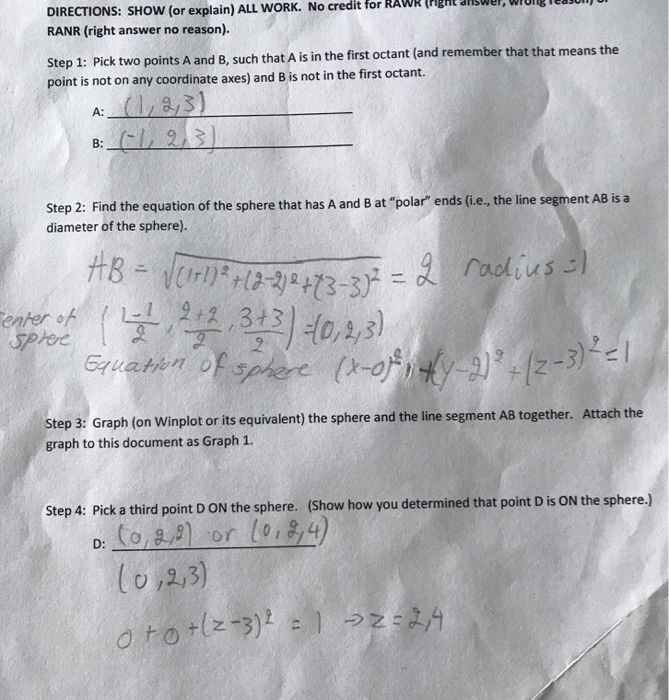 DIRECTIONS: SHOW (or explain) ALL WORK. No credit for RAWR (right answer, wrong reason) or
RANR (right answer no reason).
Step 1: Pick two points A and B, such that A is in the first octant (and remember that that means the
point is not on any coordinate axes) and B is not in the first octant.
A: (1, 2, 3)
B: (-1, 2, 3)
Step 2: Find the equation of the sphere that has A and B at "polar" ends (i.e., the line segment AB is a
diameter of the sphere).
AB = √(1+1)² + (2-2)² + (3-3)² = 2 radius = 1
center of sphere (1-1/2, 2+2/2, 3+3/2) = (0, 2, 3)
Equation of sphere (x-0)² + (y-2)² + (z-3)² = 1
Step 3: Graph (on Winplot or its equivalent) the sphere and the line segment AB together. Attach the
graph to this document as Graph 1.
Step 4: Pick a third point D ON the sphere. (Show how you determined that point D is ON the sphere.)
D: (0, 2, 2) or (0, 2, 4)
(0, 2, 3)
0 + 0 + (z-3)² = 1 → z = 2, 4